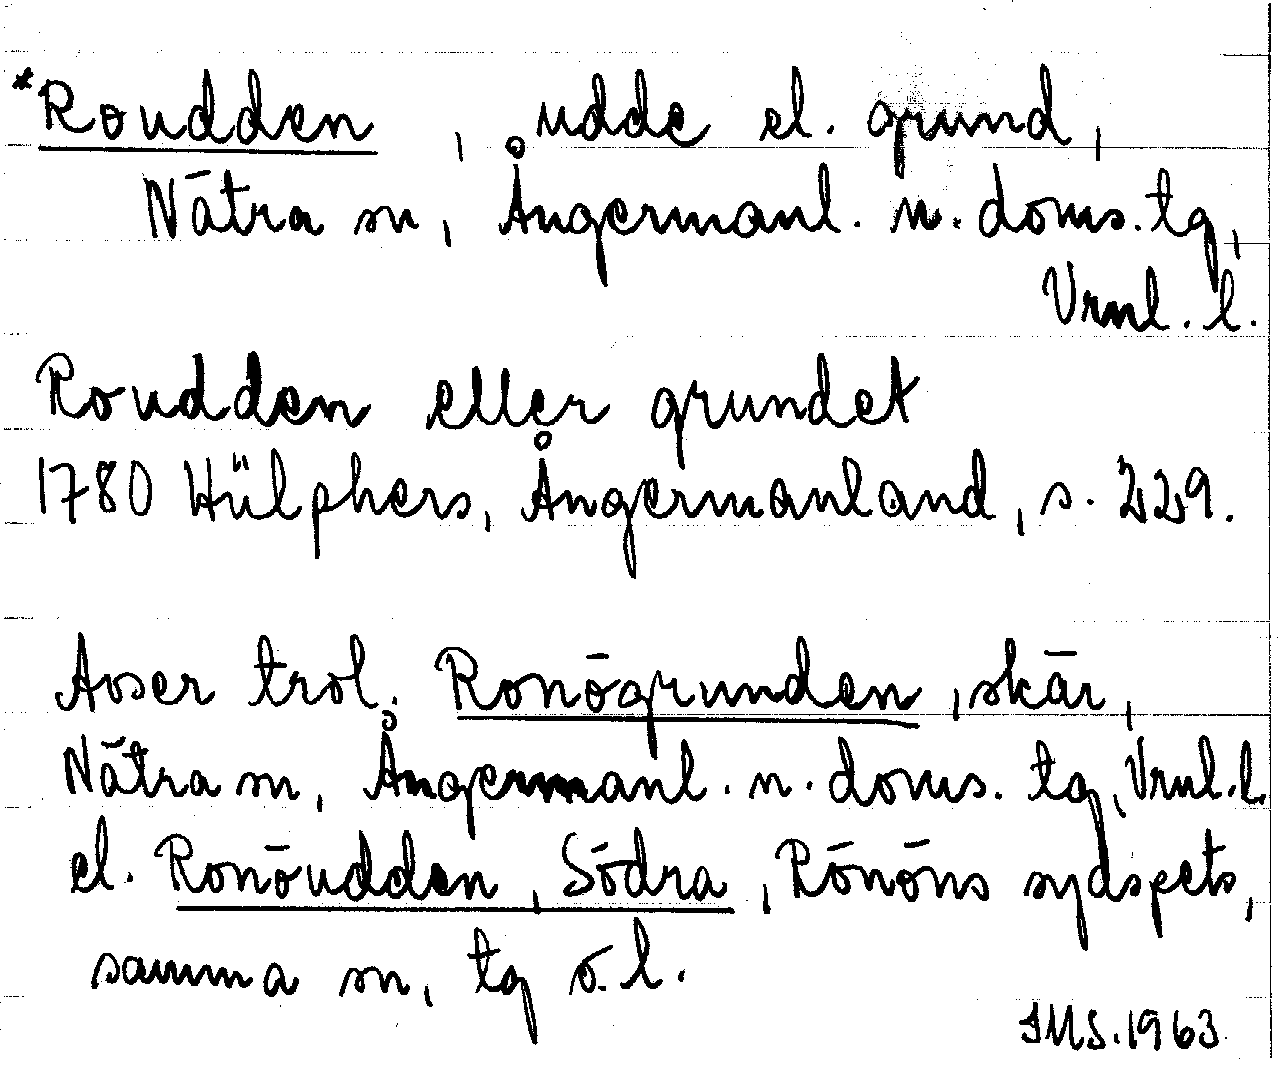 *Roudden, udde el. grund,
Nätra sn, Ångermanl. n. doms. tg,
Vrnl. l.
Roudden eller grundet
1780 Hülphers, Ångermanland, s. 229.
Avser trol. Ronögrunden, skär,
Nätra sn, Ångermanl. n. doms. tg, Vrnl. l.
el. Ronöudden, Södra, Rönöns sydspets,
samma sn, tg o. l.
IMS. 1963